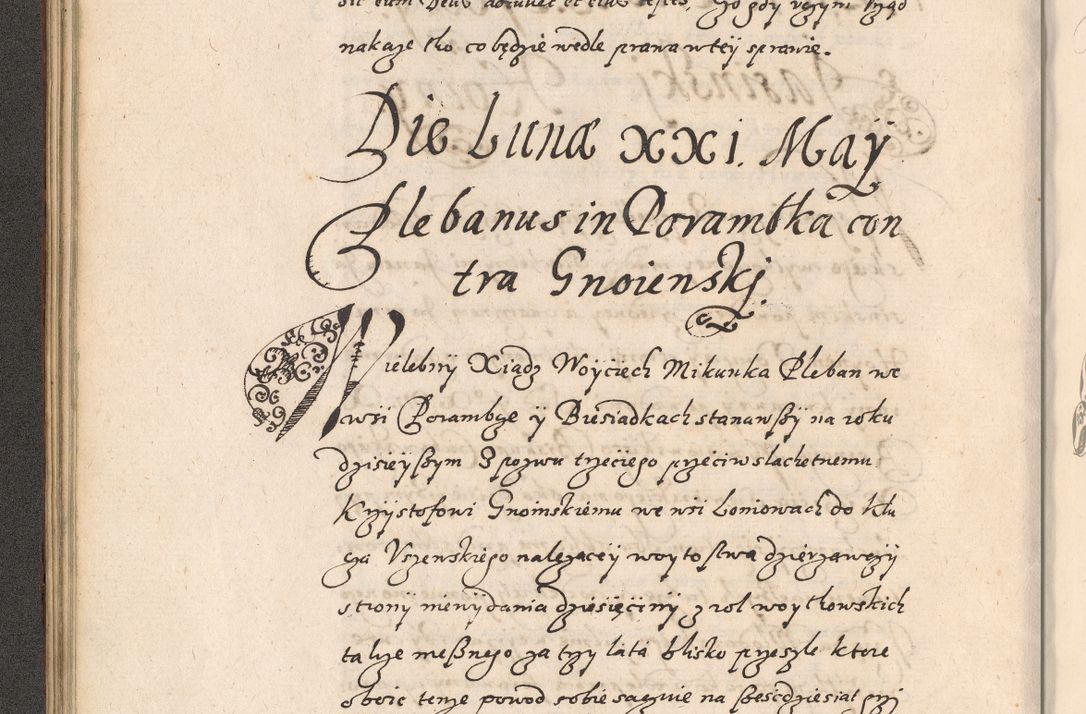 sit eum Deus adiuvet et eius testes. Zo gdy uczyni Urząd
nakaze tho co będzie wedle prawa w teÿ sprawie.
Die Lunæ XXI. Maÿ
Plebanus in Porambka con
tra Gnoienskj.
Wielebny Xiądz Woyciech Mikunka Pleban we
wsi Porambye ÿ Biesiadkach stanawßÿ na roku
dzisieÿßym Z pozwu trzeciego przeciw slachetnemu
Krzystofowi Gnoinskiemu we wsi Loniowach do klu
cza Uszewskiego nalezaceÿ woytostwa dzierzawczÿ
stronÿ niewÿdania dziesięcinÿ z rol woytowskich
takze meßnego za trzy lata blisko przeszle ktore
oboie tenze powod sobie sacuie na sześcdziesiat grzÿ